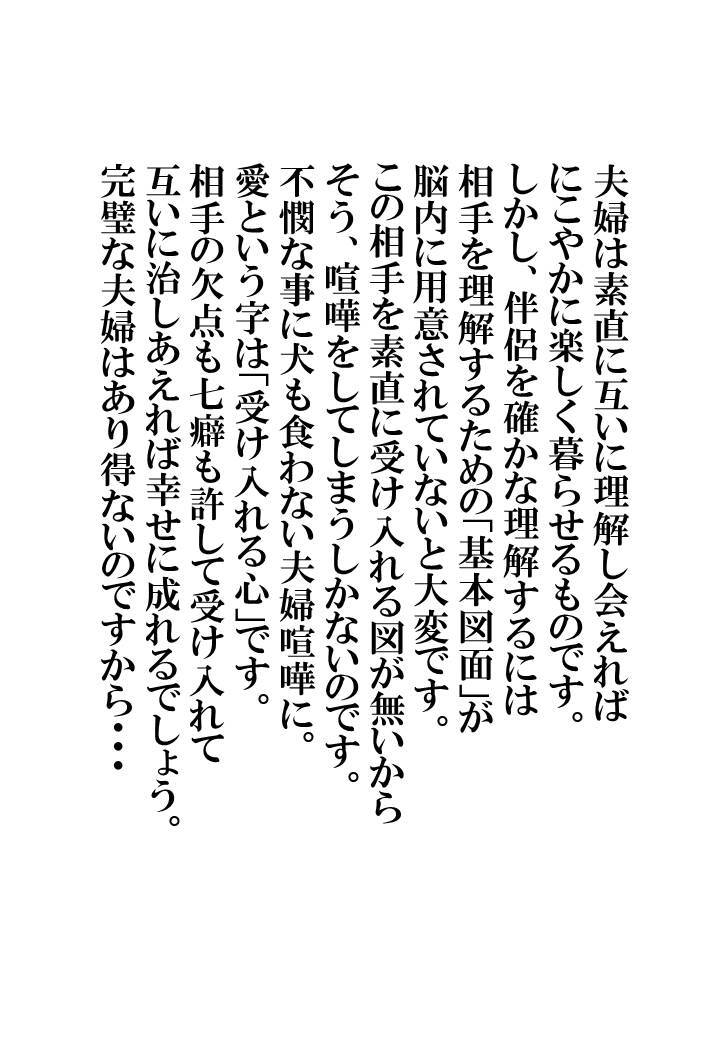 夫婦は素直に互いに理解し会えれば
にこやかに楽しく暮らせるものです。
しかし、伴侶を確かな理解するには
相手を理解するための「基本図面」が
脳内に用意されていないと大変です。
この相手を素直に受け入れる図が無いから
そう、喧嘩をしてしまうしかないのです。
不憫な事に犬も食わない夫婦喧嘩に。
愛という字は「受け入れる心」です。
相手の欠点も七癖も許して受け入れて
互いに治しあえれば幸せに成れるでしょう。
完璧な夫婦はあり得ないのですから・・・